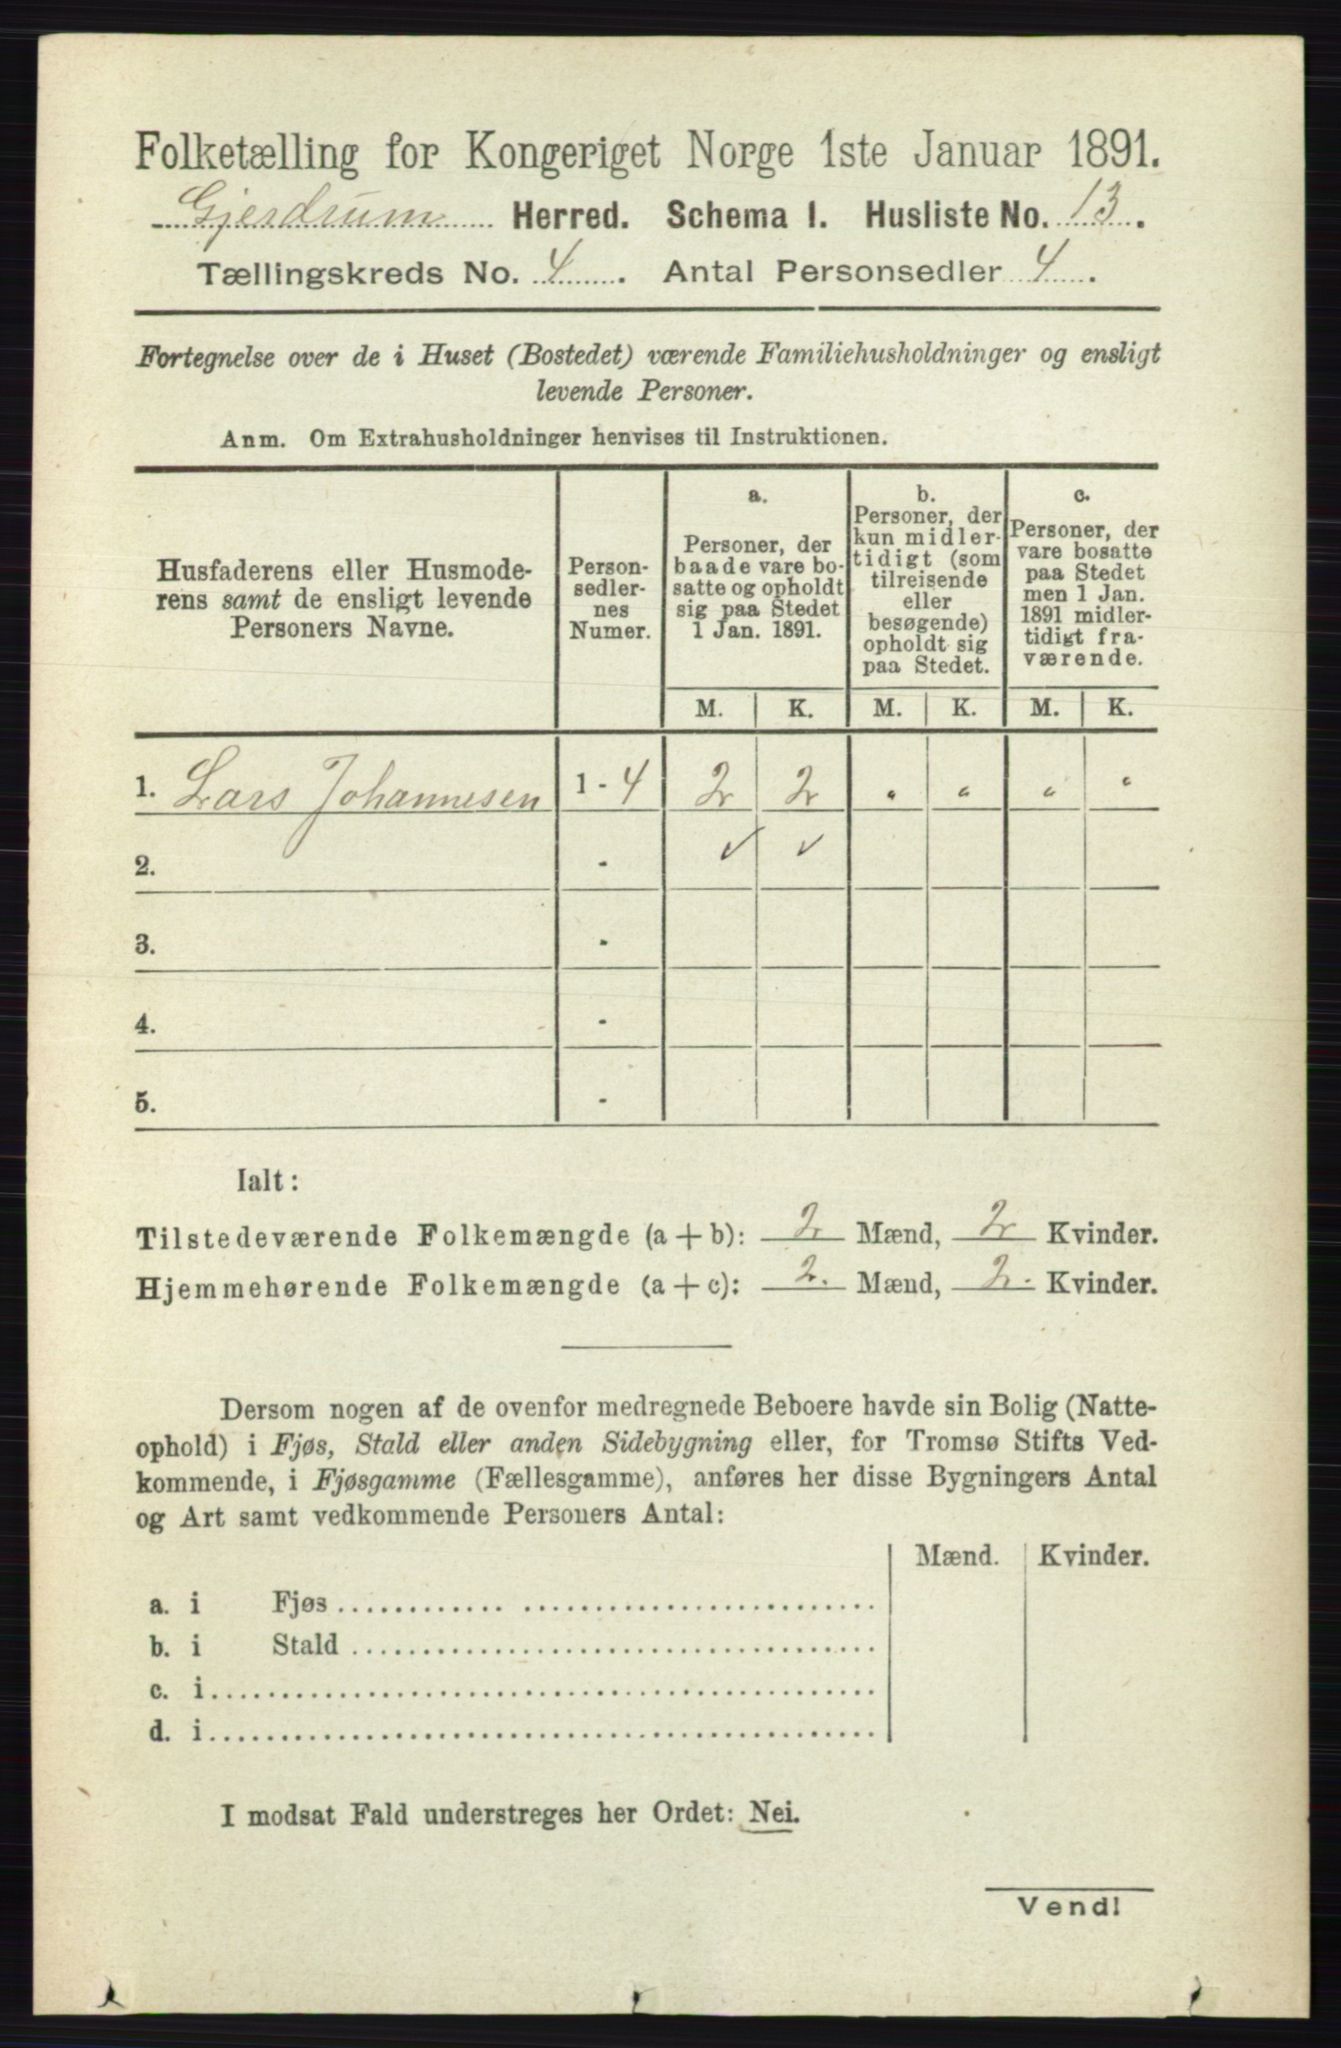 Folketælling for Kongeriget Norge 1ste Januar 1891.
Gjerdrum Herred. Schema I. Husliste No. 13.
Tællingskreds No. 4. Antal Personsedler 4.
Fortegnelse over de i Huset (Bostedet) værende Familiehusholdninger og ensligt
levende Personer.
Anm. Om Extrahusholdninger henvises til Instruktionen.
Husfaderens eller Husmode-
rens samt de ensligt levende
Personers Navne.
Person-
sedler-
nes
Numer.
a.
Personer, der
baade vare bo-
satte og opholdt
sig paa Stedet
1 Jan. 1891.
b.
Personer, der
kun midler-
tidigt (som
tilreisende
eller
besøgende)
opholdt sig
paa Stedet.
c.
Personer, der
vare bosatte
paa Stedet
men 1 Jan.
1891 midler-
tidigt fra-
værende.
M. K. M. K. M. K.
1. Lars Johannesen 1 - 4 2 2 " " " "
2. - ✓ ✓
3. -
4. -
5. -
Ialt:
Tilstedeværende Folkemængde (a + b): 2 Mænd, 2 Kvinder.
Hjemmehørende Folkemængde (a + c): 2. Mænd, 2. Kvinder.
Dersom nogen af de ovenfor medregnede Beboere havde sin Bolig (Natte-
ophold) i Fjøs, Stald eller anden Sidebygning eller, for Tromsø Stifts Ved-
kommende, i Fjøsgamme (Fællesgamme), anføres her disse Bygningers Antal
og Art samt vedkommende Personers Antal:
Mænd. Kvinder.
a. i Fjøs
b. i Stald
c. i
d. i
I modsat Fald understreges her Ordet: Nei.
Vend!